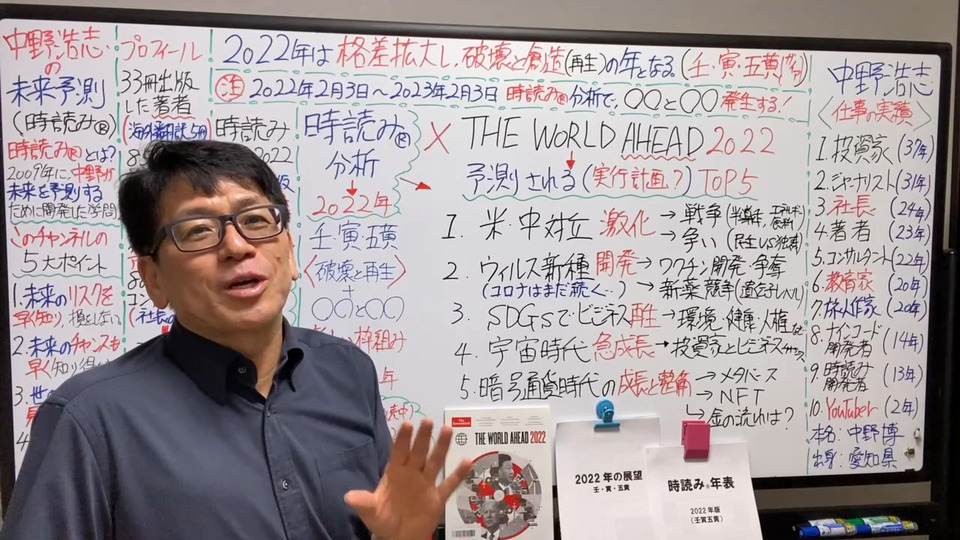 中野浩志
の
未来予測
(時読み®)
時読み®とは?
2009年に、中野が
未来を予測する
ために開発した学問
このチャンネルの
5大ポイント
1.未来のリスクを
早く知り、損をしない
2.未来のチャンスも
早く知り得
3.世の
4
プロフィール
33冊出版
した著者
時読み
2022
2022年は格差拡大し、破壊と創造(再生)の年となる(壬・寅・五黄
注 2022年2月3日~2023年2月3日 時読み®分析で、〇〇と〇〇発生する!
時読み®
分析
2022年
壬・寅・五黄
〈破壊と再生〉
+
〇〇と〇〇
枠組み
年
× THE WORLD AHEAD 2022
予測される(実行計画?)TOP5
1. 米・中対立 激化→戦争
→争い(民主VS独裁)
2. ウィルス新種 開発→ワクチン開発・争奪
(コロナはまだ続く‥)→新薬競争(遺伝子レベル)
3. SDGSでビジネス再生→環境・健康・人権など
4. 宇宙時代 急成長→投資家とビジネス
5. 暗号通貨時代の成長と整備→メタバース
→NFT
→金の流れは?
中野浩志
〈仕事の実績〉
1.投資家(37年)
2.ジャーナリスト(31年)
3.社長(24年)
4.著者(23年)
5.コンサルタント(22年)
6.教育家(20年)
7.旅人作家(20年)
8.ナインコード
開発者(14年)
9.時読み
開発者(13年)
10.YouTuber(2年)
本名:中野博
出身:愛知県
The Economist
THE WORLD AHEAD 2022
2022年の展望
壬・寅・五黄
時読み®年表
2022年版
(壬寅五黄)